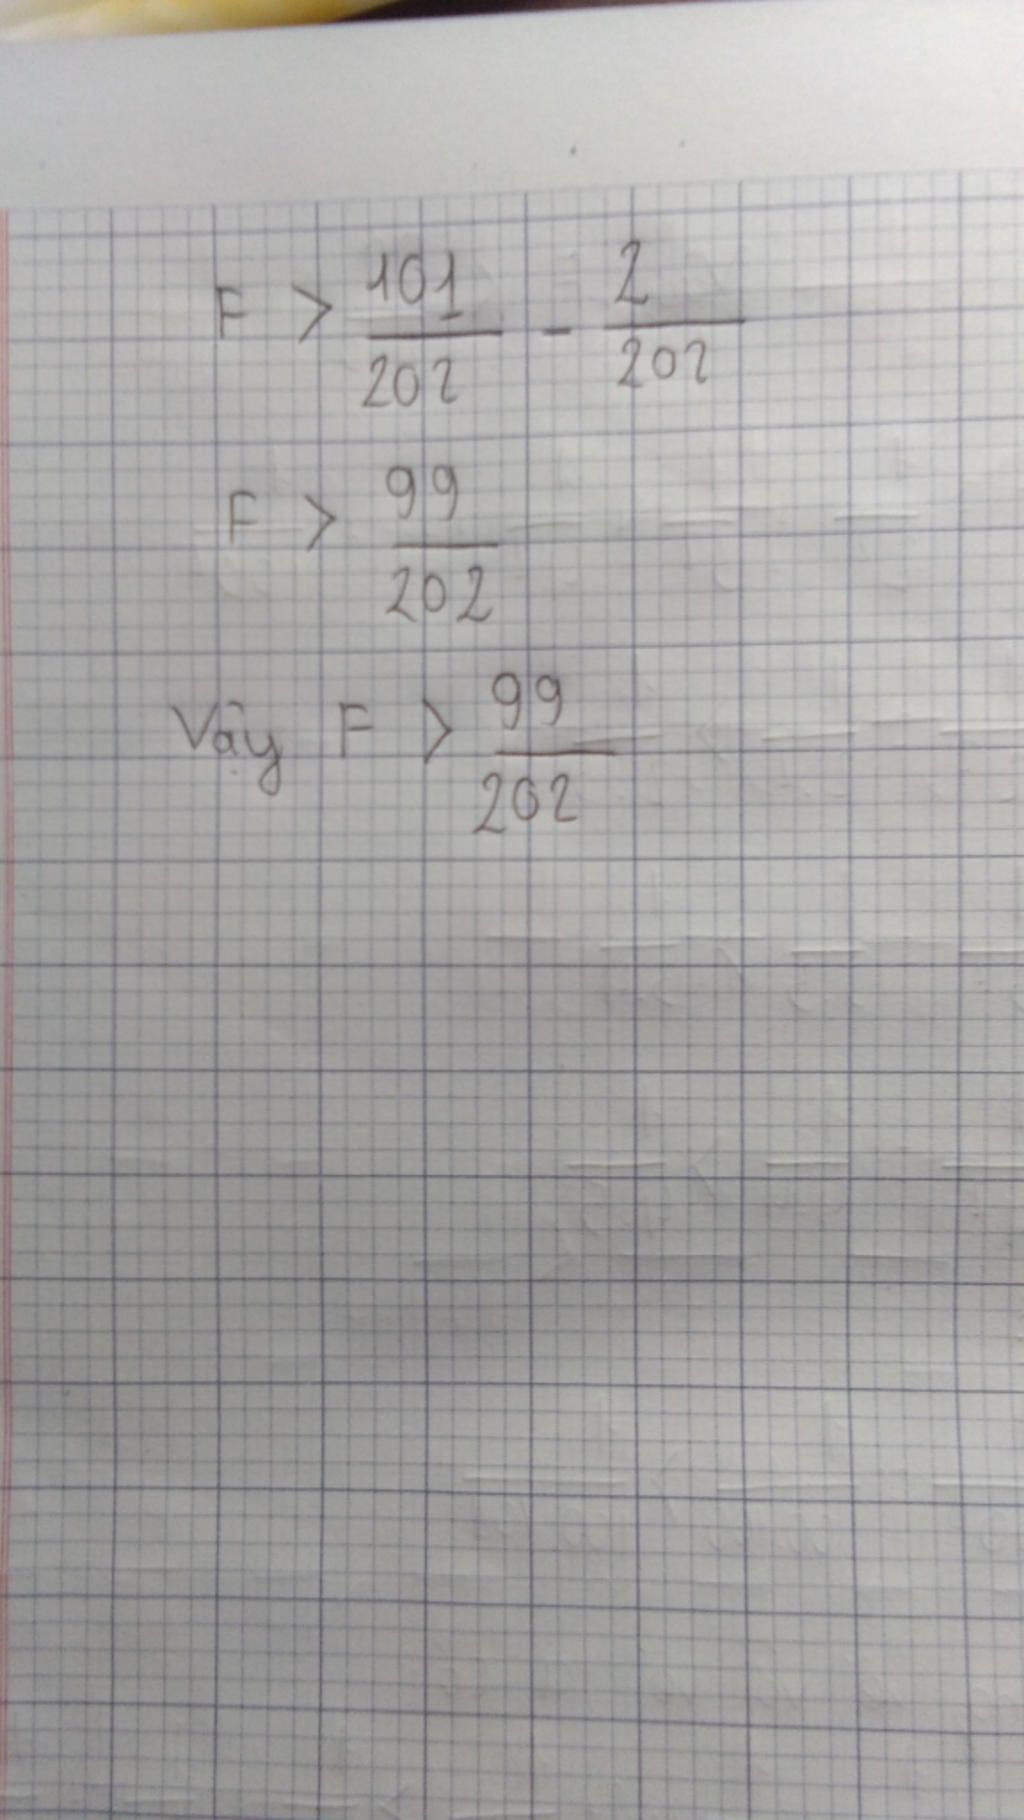 F > 101/202 - 2/202
F > 99/202
Vậy F > 99/202